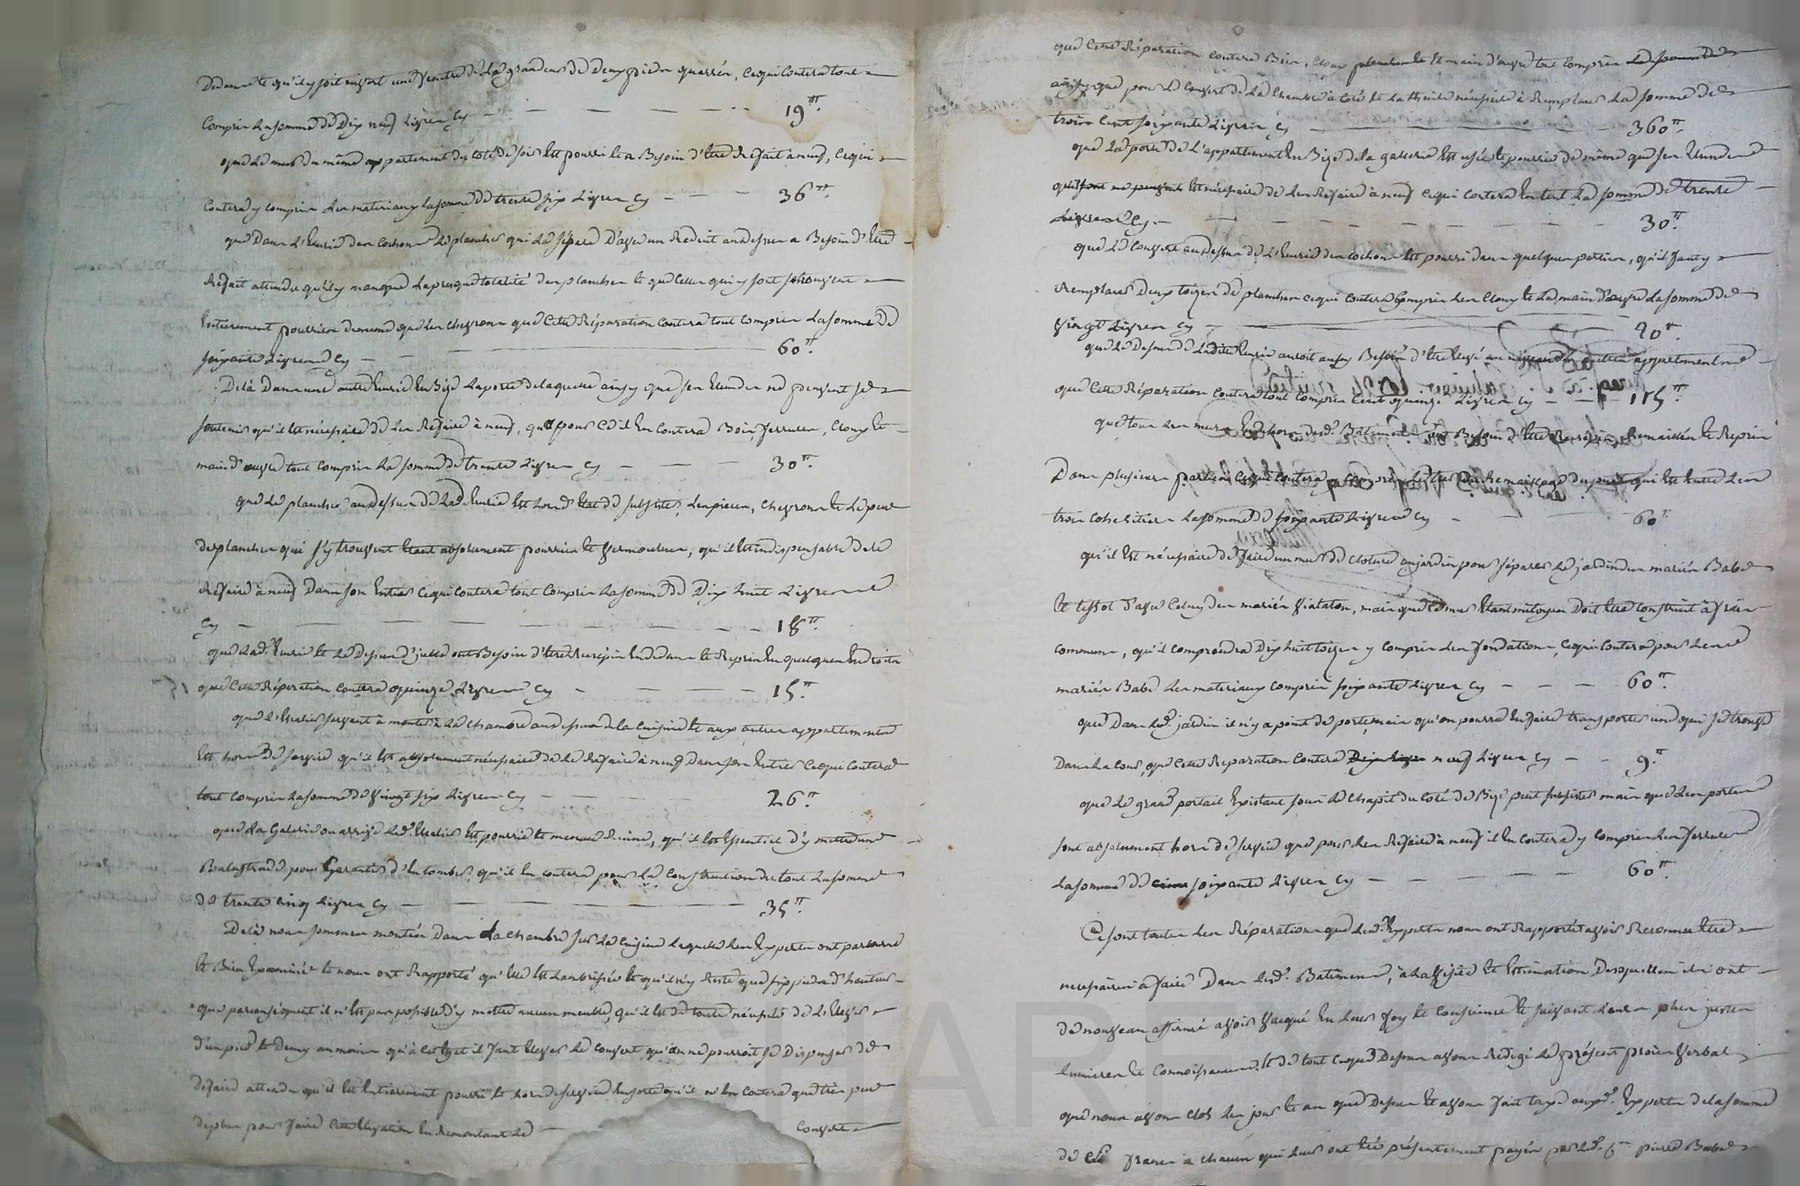 Dedans et qu'il y soit ouvert une fenetre de la grandeur de deux pieds quarrés, ce qui coutera tout
compris la somme de Dix neuf Livres Cy — 19 ₶.
que le mur du même appartement du coté de soir est pourri et a Besoin d'être refait à neuf, ce qui
coutera y compris les materiaux la somme de trente six Livres Cy — 36 ₶.
que Dans l'Ecurie des cochons le plancher qui le sépare d'avec un Reduit au dessus a Besoin d'être
Refait attendu qu'il y manque la presque totalité des planches et que celles qui y sont se trouvent
entierement pourries de meme que les chevrons que cette Réparation coutera tout compris la somme de
soixante Livres Cy — 60 ₶.
De là Dans une autre Ecurie en Bize la porte de laquelle ainsy que ses Etendues ne peuvent se
soutenir qu'il est nécessaire de les Refaire à neuf, que pour ce il en coutera Bois, ferrures, cloux et
main d'œuvre tout compris la somme de trente Livres Cy — 30 ₶.
que le plancher au dessus de lad. Ecurie est hors d'état de subsister, les pieces, chevrons et le peu
de planches qui s'y trouvent étant absolument pourries et vermoulues, qu'il est indispensable de le
Refaire à neuf Dans son entier ce qui coutera tout compris la somme de Dix huit Livres
Cy — 18 ₶.
que lad. Ecurie et le Dessus d'icelle ont Besoin d'être Recrépis en dedans et Repris en quelques Endroits
que cette Réparation coutera quinze Livres Cy — 15 ₶.
que l'Escalier servant à monter à la chambre au dessus de la cuisine et aux autres appartements
est hors de service qu'il est absolument nécessaire de le Refaire à neuf Dans son Entier ce qui coutera
tout compris la somme de Vingt six Livres Cy — 26 ₶.
que la Galerie ou arrive led. Escalier est pourrie et menace Ruine, qu'il est Essentiel d'y mettre une
Balustrade pour Garantir d'Encombre, qu'il en coutera pour la construction du tout la somme
de trente cinq Livres Cy — 35 ₶.
De là nous sommes montés Dans la chambre sur la cuisine laquelle les Experts ont parcourue
et Bien Examinée et nous ont Rapporté qu'elle est Lambrissée et qu'il n'y Reste que six pieds d'hauteur
que par conséquent il n'est pas possible d'y mettre aucun meuble, qu'il est de toute nécessité de l'Elever
d'un pied et Demy au moins qu'à cet Effet il faut Elever le couvert, qu'on ne pourroit se Dispenser de
Refaire attendu qu'il est Entierement pourri et hors de service en sorte qu'il n'en coutera que très peu
de plus pour faire cette Elevation en Remontant le
couvert
que cette Réparation coutera Bois, cloux et main d'œuvre tout compris La somme de
ainsy que pour le couvert de la chambre à coté et la thuile nécessaire à Remplacer La somme de
trois cent soixante Livres Cy — 360 ₶.
que la porte de l'appartement En Bize de la gallerie est usée et pourrie de même que ses Etendues
est nécessaire de les Refaire à neuf ce qui coutera en tout La somme de trente
Livres Cy — 30 ₶.
que le couvert au Dessus de l'Ecurie des cochons est pourri dans quelques parties, qu'il faut y
Remplacer Deux toises de plancher ce qui coutera compris les cloux et la main d'œuvre la somme de
Vingt Livres Cy — 20 ₶.
que le Dessus de Ladite Ecurie auroit aussy Besoin d'être Elevé au niveau des autres appartements
que cette Réparation coutera tout compris cent quinze Livres Cy — 115 ₶.
que tous les murs En dehors desd. Batiments ont Besoin d'être Recrépis, Remaisés et Repris
Dans plusieurs parties ce qui coutera y compris le Remaisage du puits qui est entre les
trois cohéritiers La somme de soixante Livres Cy — 60 ₶.
qu'il est nécessaire de faire un mur de cloture au jardin pour séparer le jardin des mariés Babe
et tissot d'avec celuy des mariés Viataton, mais que ce mur étant mitoyen doit être construit à frais
communs, qu'il comprendra Dix huit toises y compris les fondations, ce qui coutera pour les
mariés Babe Les materiaux compris soixante Livres Cy — 60 ₶.
que Dans led. jardin il n'y a point de porte, mais qu'on pourra En faire transporter une qui se trouve
Dans la cour, que cette Reparation coutera neuf Livres Cy — 9 ₶.
que le grand portail Existant sous le chapit du coté de Bize peut subsister mais que les portes
sont absolument hors de service que pour les Refaire à neuf il En coutera y compris les ferrures
La somme de soixante Livres Cy — 60 ₶.
Ce sont toutes les Réparations que lesd. Experts nous ont Rapporté avoir Reconnu être
nécessaires à faire Dans lesd. Batiments, à la Visite et Estimation Desquelles ils ont
de nouveau affirmé avoir Vacqué En leur foy et conscience et suivant leurs plus justes
lumieres et connoissances. Et de tout ce que Dessus avons Redigé le présent procès Verbal
que nous avons clos les jour et an que Dessus et avons fait taxe auxd. Experts de la somme
de francs à chacun qui leur ont été présentement payés par led. Cn pierre Babe